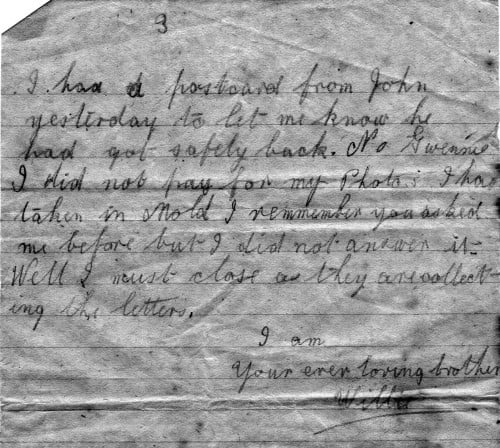 3
I had a postcard from John
yesterday to let me know he
had got safely back. No Gwennie
I did not pay for my Photos I ha
taken in Mold I remmember you asked
me before but I did not answer it.
Well I must close as they are collect
ing the letters.
I am
Your ever loving brother
Willie